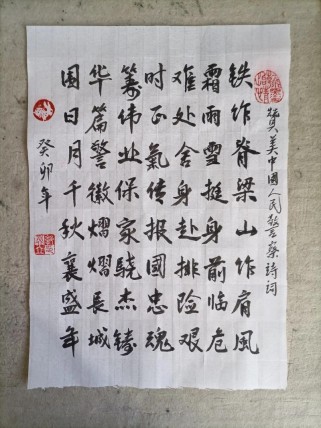 赞美中國人民警察詩词
铁作脊梁山作肩风
霜雨雪挺身前临危
难处舍身赴排险艰
时正氣传报國忠魂
筹伟业保家骁杰铸
华篇警徽熠熠長城
固日月千秋襄盛年
癸卯年